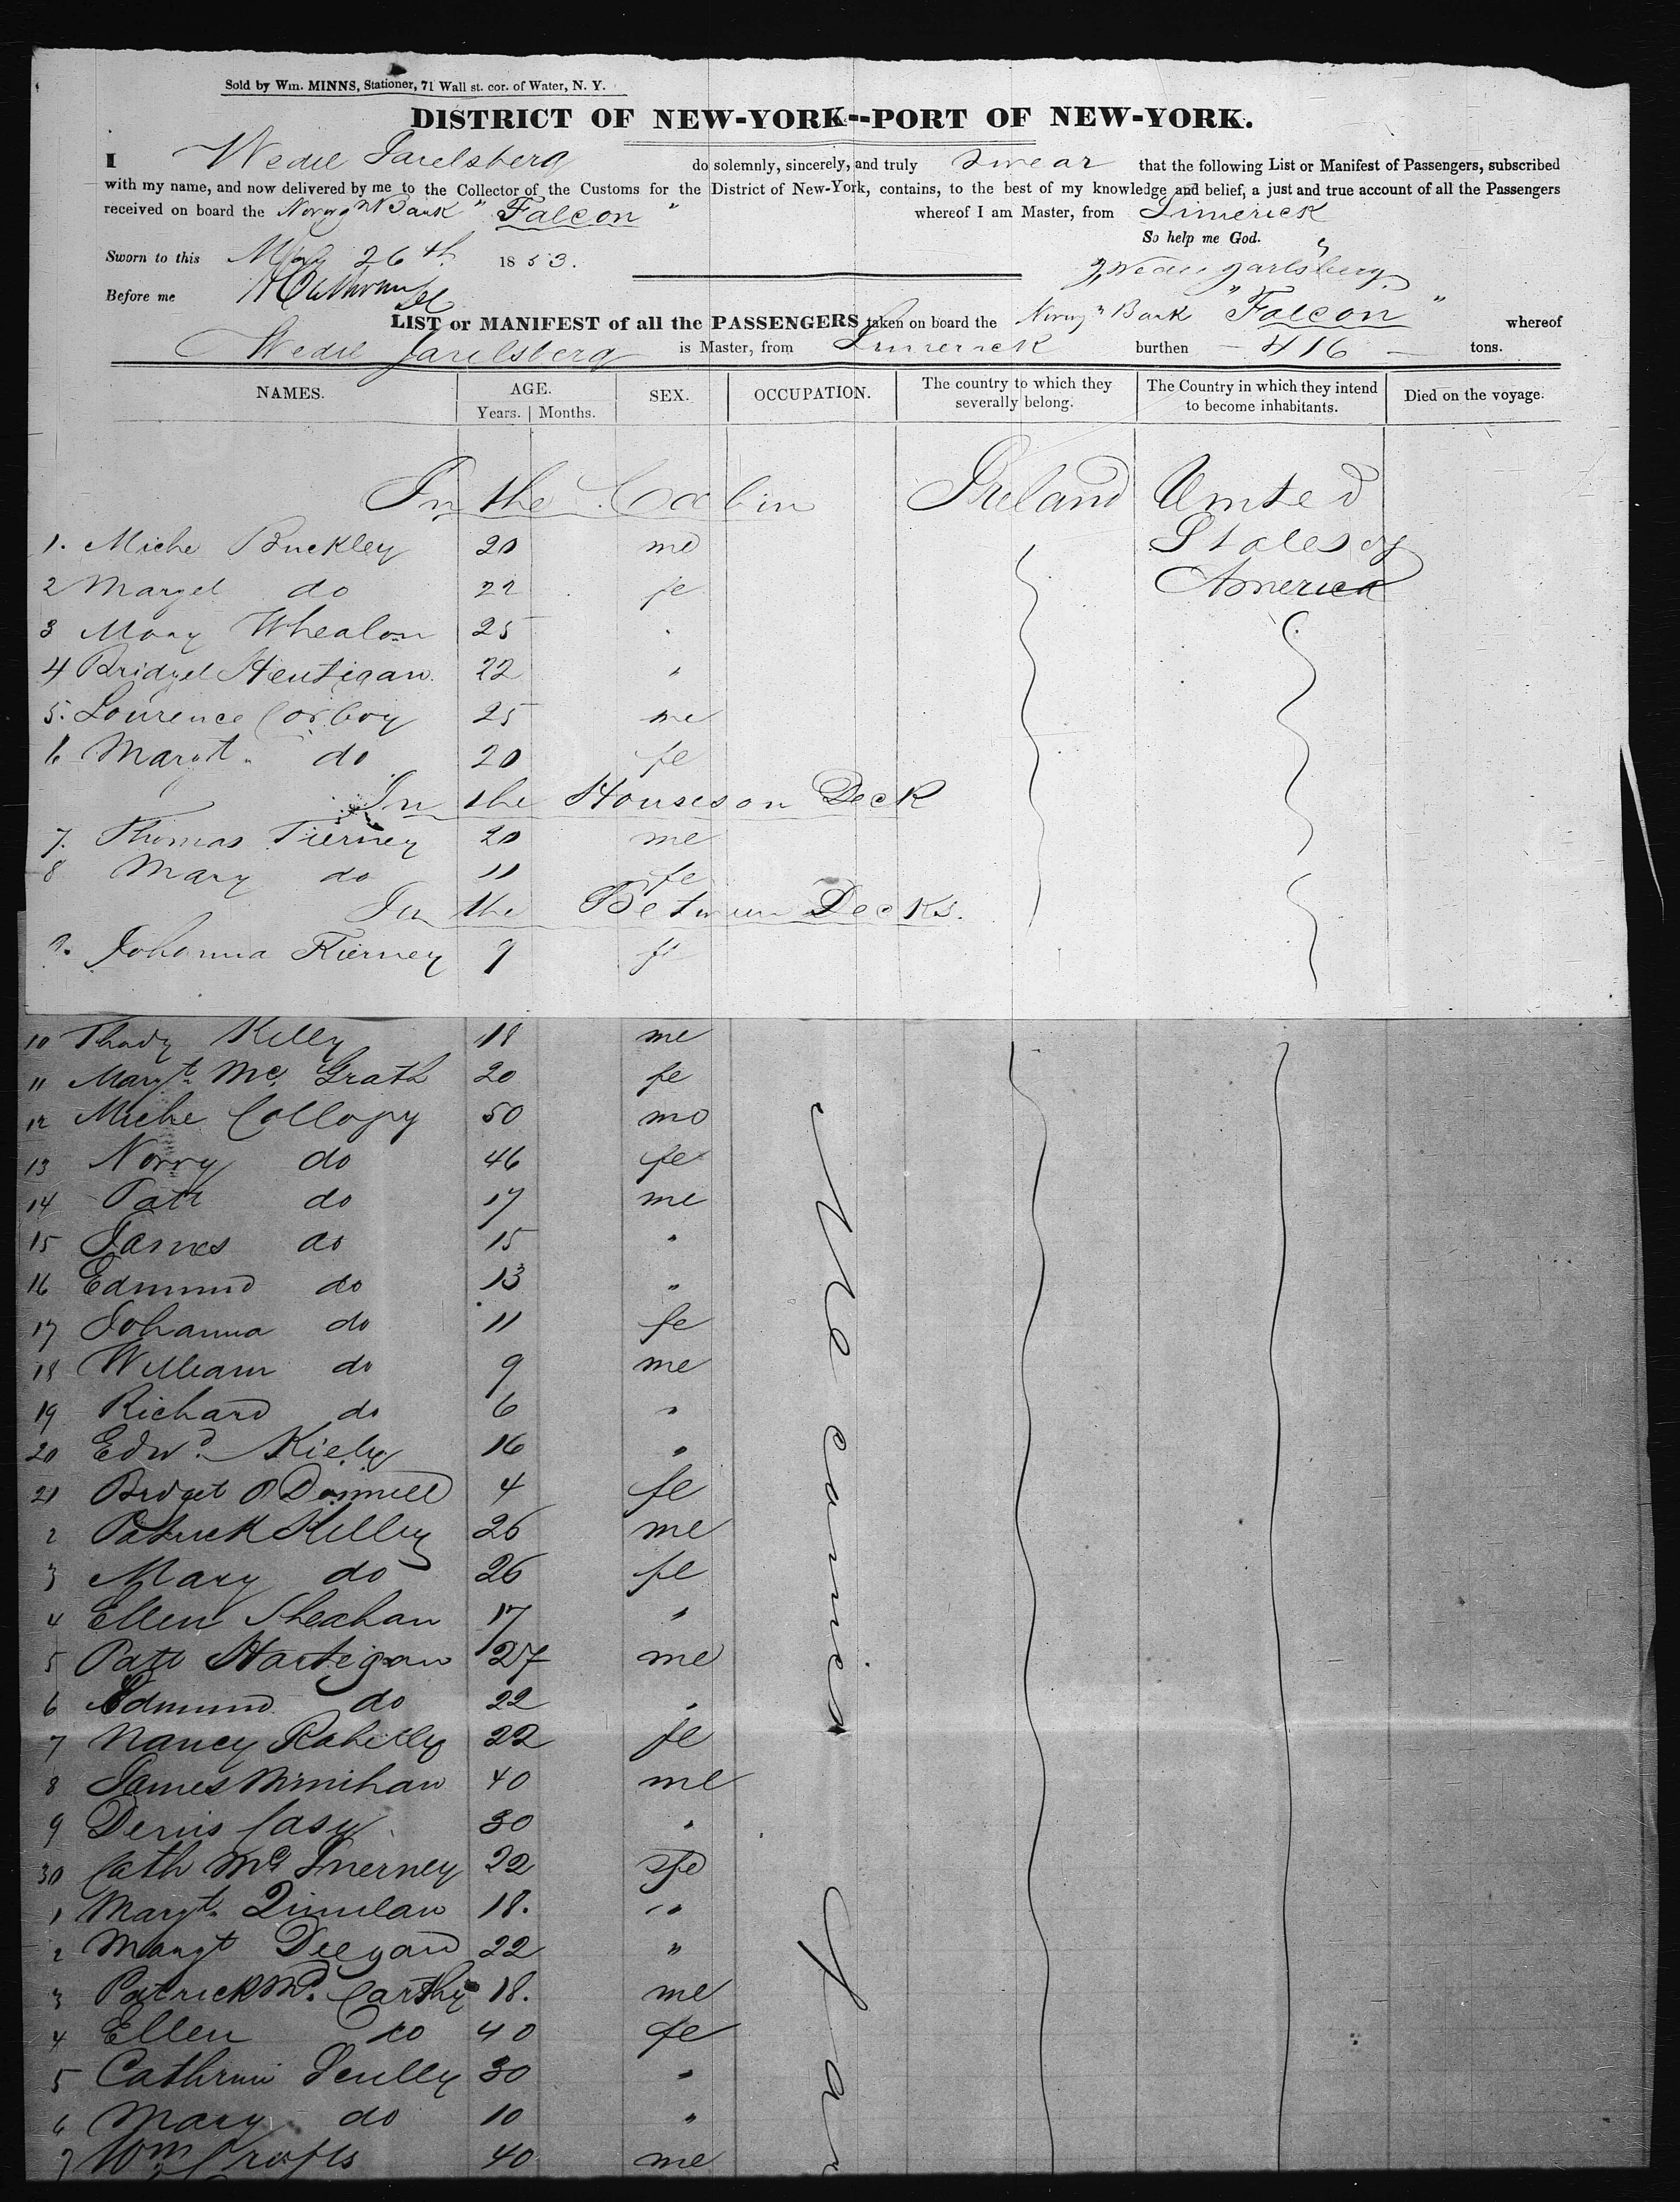 Sold by Wm. MINNS, Stationer, 71 Wall st. cor. of Water, N. Y.
DISTRICT OF NEW-YORK--PORT OF NEW-YORK.
I Wedel Jarelsberg do solemnly, sincerely, and truly swear that the following List or Manifest of Passengers, subscribed
with my name, and now delivered by me to the Collector of the Customs for the District of New-York, contains, to the best of my knowledge and belief, a just and true account of all the Passengers
received on board the Norwgn Bark "Falcon" whereof I am Master, from Limerick
So help me God.
Sworn to this May 26th 1853.
Wedel Jarlsberg
Before me
LIST or MANIFEST of all the PASSENGERS taken on board the Norwgn Bark "Falcon" whereof
Wedel Jarelsberg is Master, from Limerick burthen - 416 - tons.
NAMES. AGE. Years. Months. SEX. OCCUPATION. The country to which they severally belong. The Country in which they intend to become inhabitants. Died on the voyage.
In the Cabin Ireland United
1. Miche Buckley 20 me States of
2 Margel do 22 fe America
3 Mary Whealon 25 "
4 Bridgel Hentigan 22 "
5. Lourence Corboy 25 me
6 Margt. do 20 fe
In the Houses on Deck
7. Thomas Tierney 20 me
8 Mary do 11 fe
In the Between Decks.
9. Johanna Tierney 9 fe
10 Thady Kelly 18 me
11 Margt. Mc. Grath 20 fe
12 Miche Collopy 50 me
13 Norry do 46 fe
14 Patt do 17 me
15 James do 15 "
16 Edmund do 13 "
17 Johanna do 11 fe
18 William do 9 me
19 Richard do 6 "
20 Edwd. Kiely 16 "
21 Bridget O Donnell 4 fe
2 Patrick Killey 26 me
3 Mary do 26 fe
4 Ellen Sheahan 17 "
5 Patt Hartigan 27 me
6 Edmund do 22 "
7 Nancy Rahilly 22 fe
8 James Minihan 40 me
9 Denis Casy 30 "
30 Cath Mc Inerney 22 fe
1 Margt. Quinlan 18. "
2 Margt Deegan 22 "
3 Patrick Mc. Carthy 18. me
4 Ellen do 40 fe
5 Cathrin Scully 30 "
6 Mary do 10 "
7 Wm Crofts 40 me